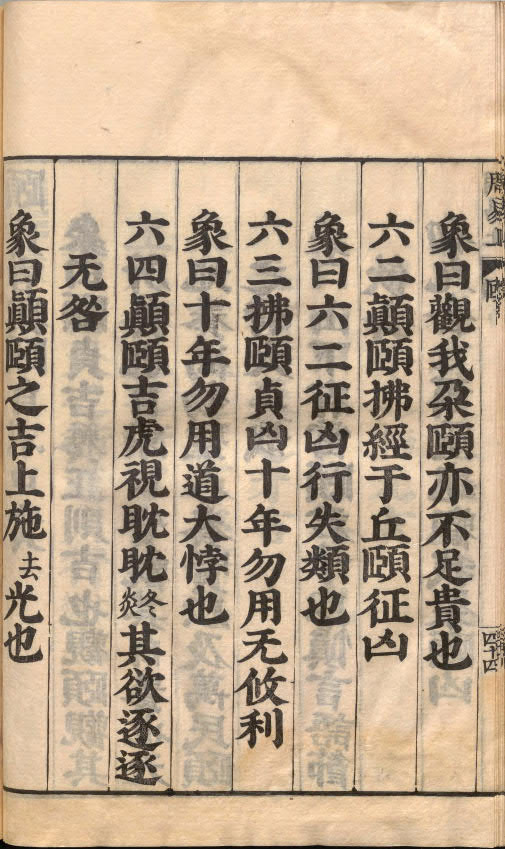 周易上 頤 四十四
象曰觀我朶頤亦不足貴也
六二顚頤拂經于丘頤征凶
象曰六二征凶行失類也
六三拂頤貞凶十年勿用无攸利
象曰十年勿用道大悖也
六四顚頤吉虎視眈眈冬炎其欲逐逐
无咎
象曰顚頤之吉上施去光也